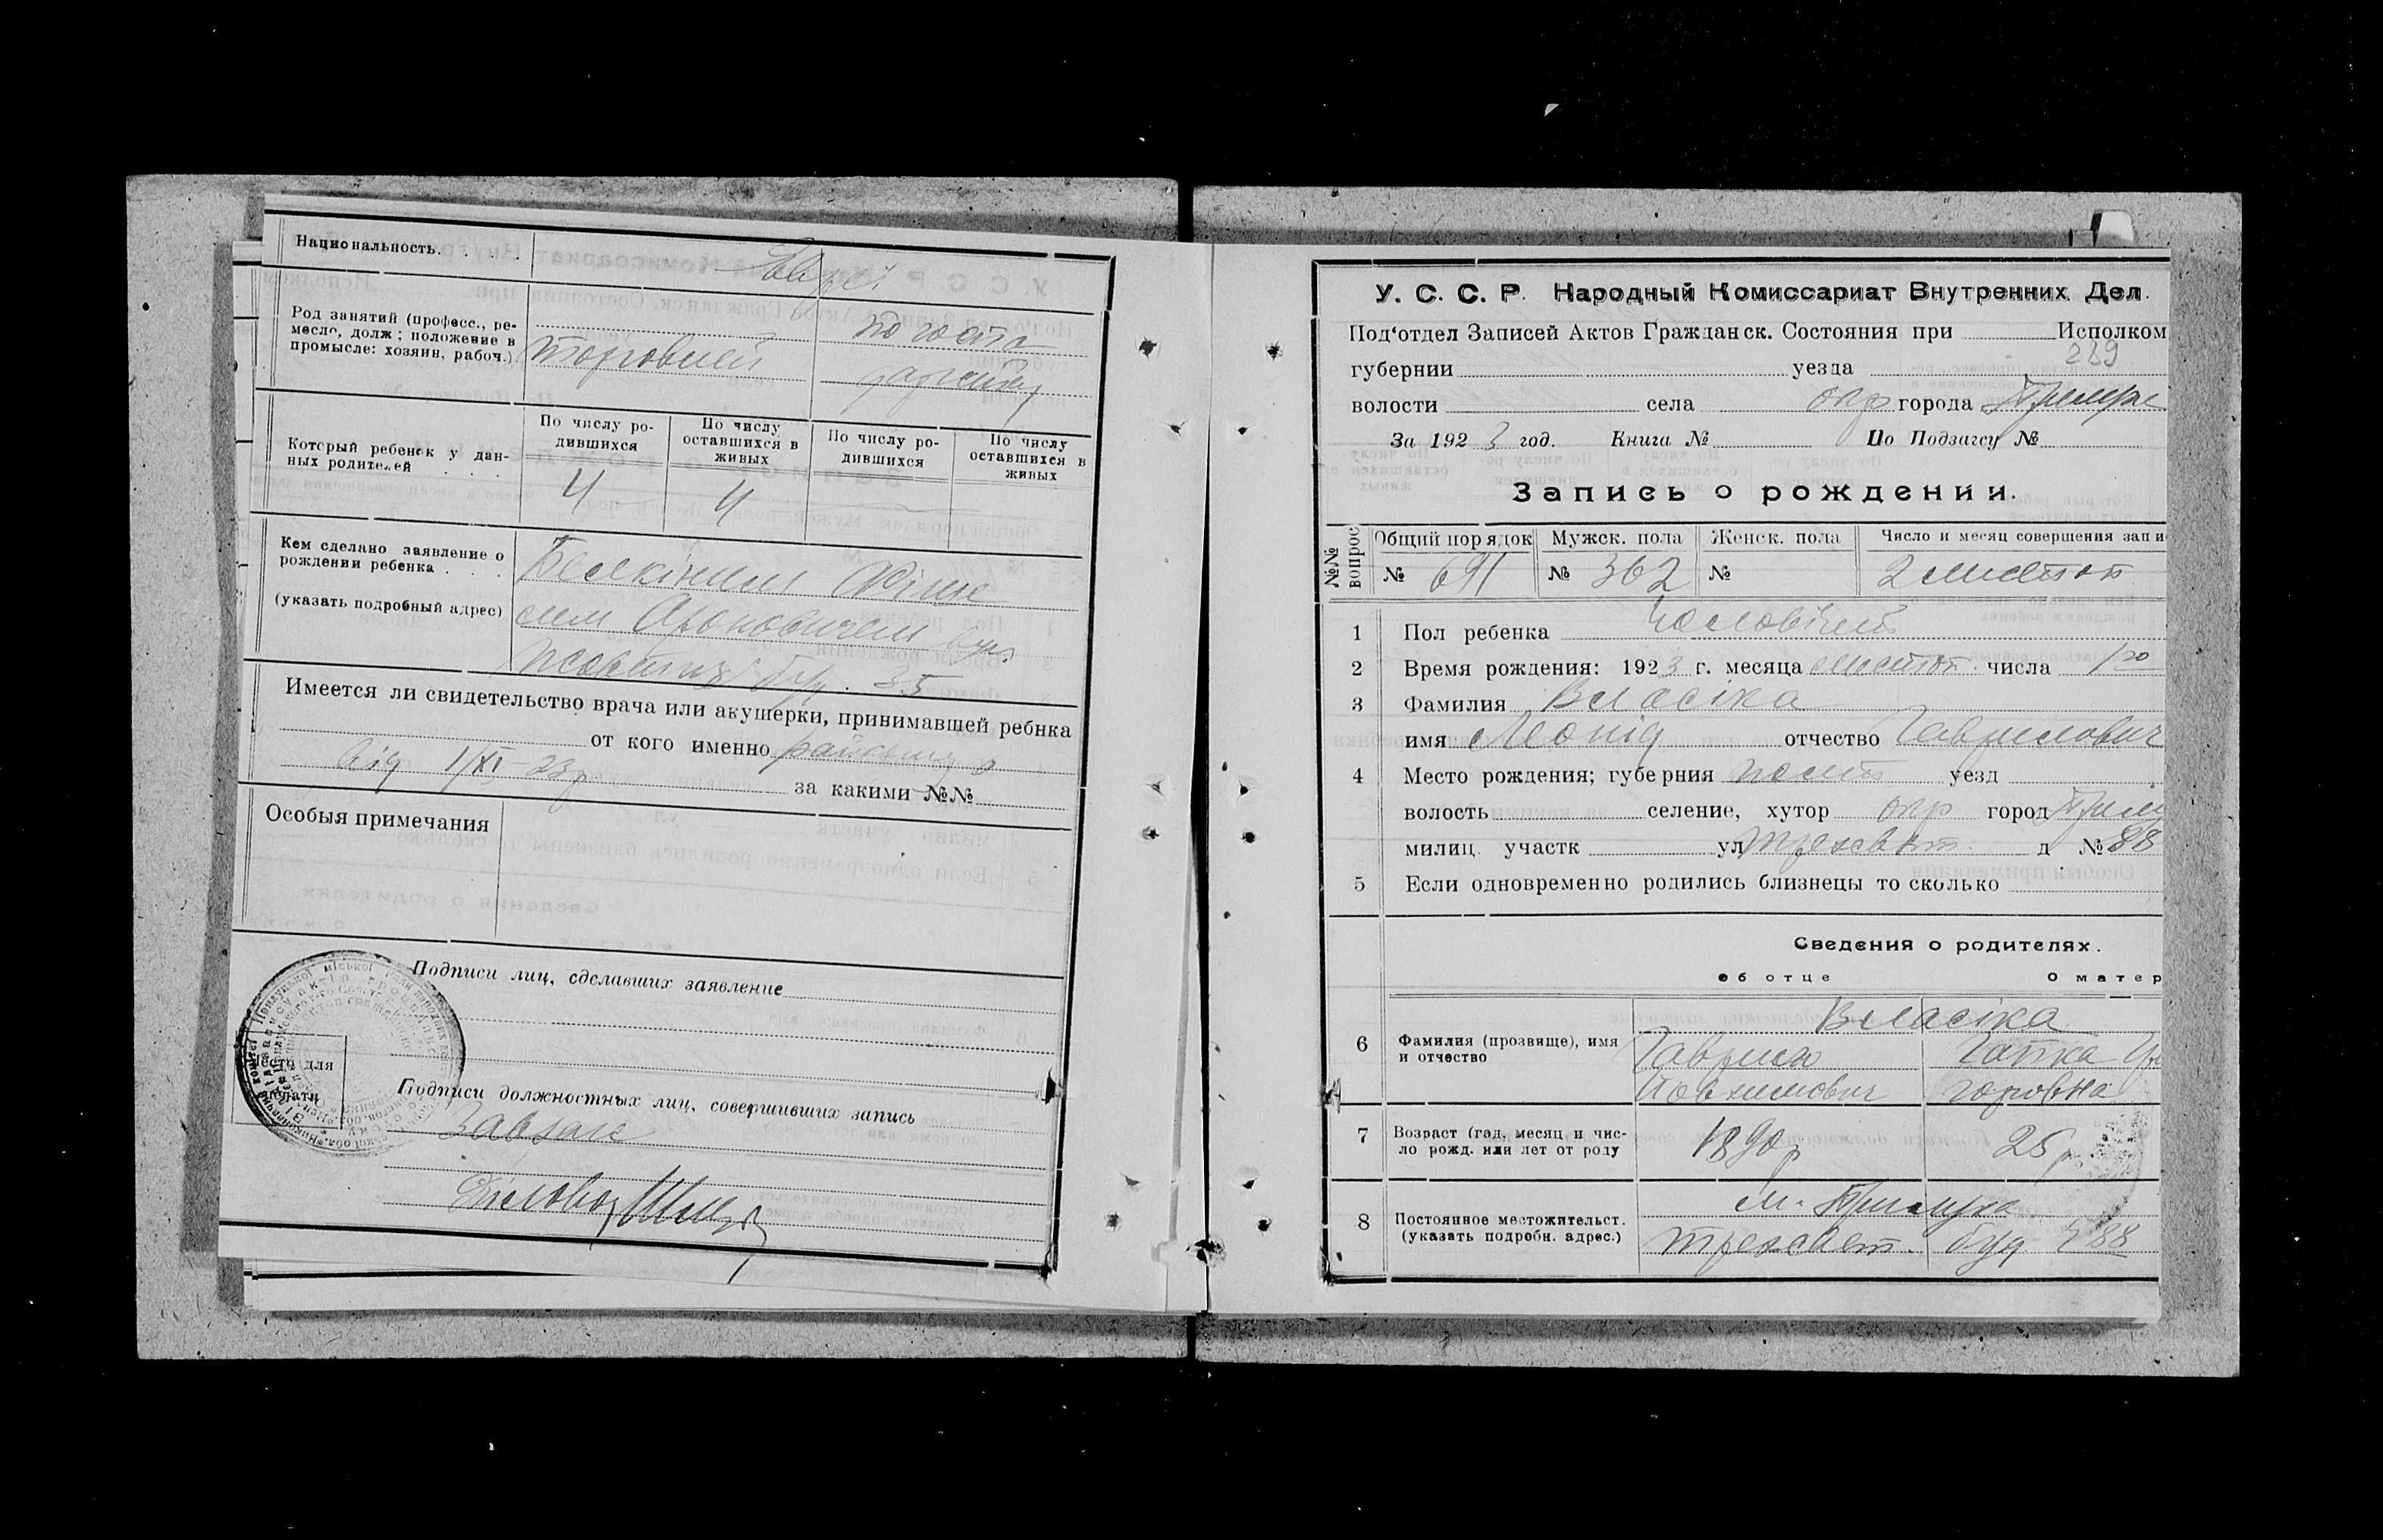 Национальность. . . . .
Евреї
Род занятий (професс., ре-
месло, долж; положение в
промысле: хозяин, рабоч.)
торговлей
Который ребенок у дан-
ных родителей . . .
По числу ро-
дившихся
По числу
оставшихся в
живых
По числу ро-
дившихся
По числу
оставшихся в
живых
4 4
Кем сделано заявление о
рождении ребенка . . .
(указать подробный адрес)
Ароновичем вул.
буд. 35
Имеется ли свидетельство врача или акушерки, принимавшей ребнка
от кого именно
від 1/XI-23р за какими №№
Особыя примечания
Подписи лиц, сделавших заявление
Место для
печати
Подписи должностных лиц, совершивших запись
Завзаг
Діловод
У. С. С. Р. Народный Комиссариат Внутренних Дел.
Под'отдел Записей Актов Гражданск. Состояния при Исполком
229
губернии уезда
волости села окр города Прилуки
За 1923 год. Книга № По Подзагсу №
Запись о рождении.
№№ вопрос
Общий порядок Мужск. пола Женск. пола Число и месяц совершения запи
№ 691 № 362 № 2 листоп
1 Пол ребенка чоловічий
2 Время рождения: 1923 г. месяца листоп. числа 1го
3 Фамилия Власіка
имя Леонід отчество Гаврилович
4 Место рождения; губерния полт уезд
волость селение, хутор окр город Прилу
милиц. участк ул Трехсвят. д № 88
5 Если одновременно родились близнецы то сколько
Сведения о родителях.
об отце О матер
6 Фамилия (прозвище), имя
и отчество
Власіка
Гаврило Гапка Гри
горовна
7 Возраст (год, месяц и чис-
ло рожд. или лет от роду
1890р 25 р.
8 Постоянное местожительст.
(указать подробн. адрес.)
м. Прилука
Трехсвят. буд № 88